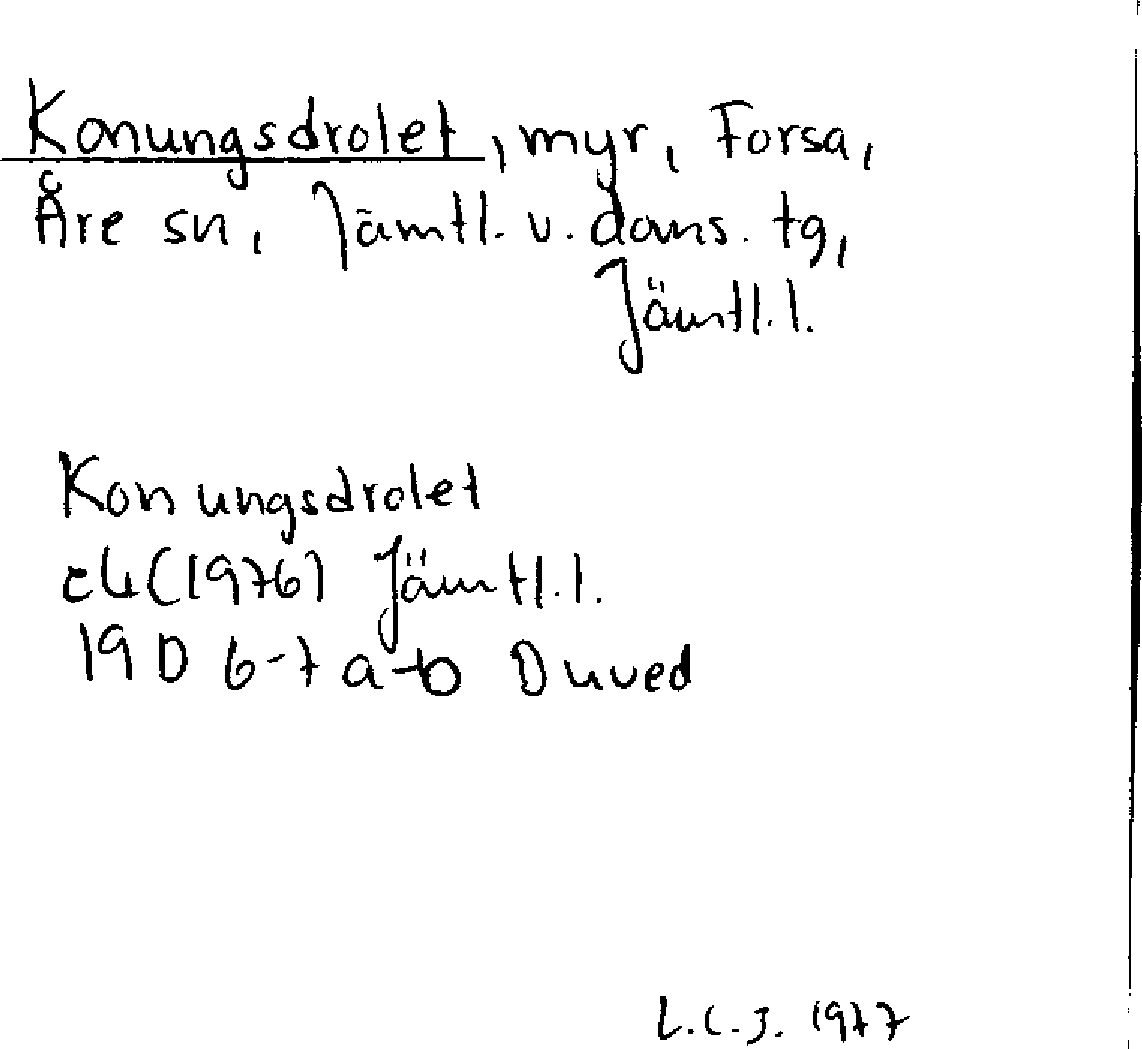 Konungsdrolet, myr, Forsa,
Åre sn, Jämtl. v. doms. tg,
Jämtl. l.
Konungsdrolet
ek (1976) Jämtl. l.
19 D 6-7 a-b Duved
L.C.J. 1977